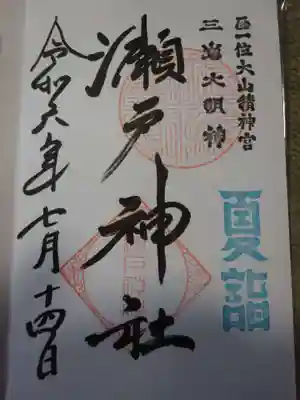 正一位大山積神宮
三嶌大明神
夏詣
瀬戸神社
令和六年七月十四日